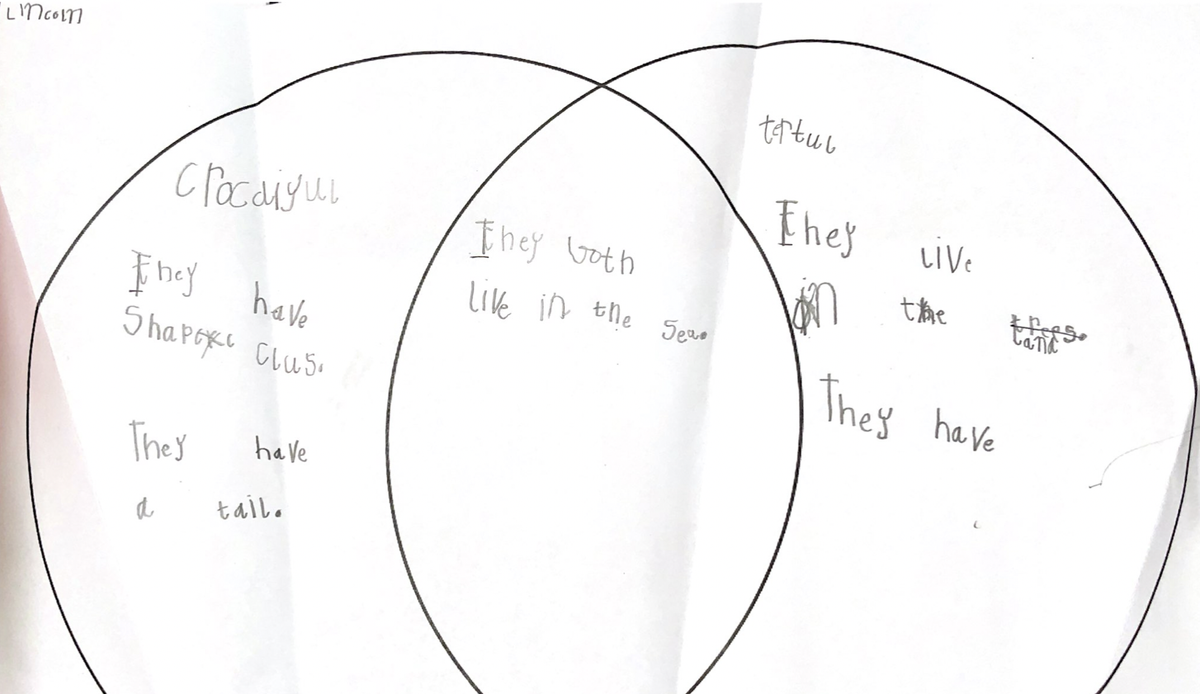 Lincoln
Crocdiyul
They have
Sharp clus.
They have
a tail.
They both
live in the sea.
trtul
They live
in the trees.
land
They have